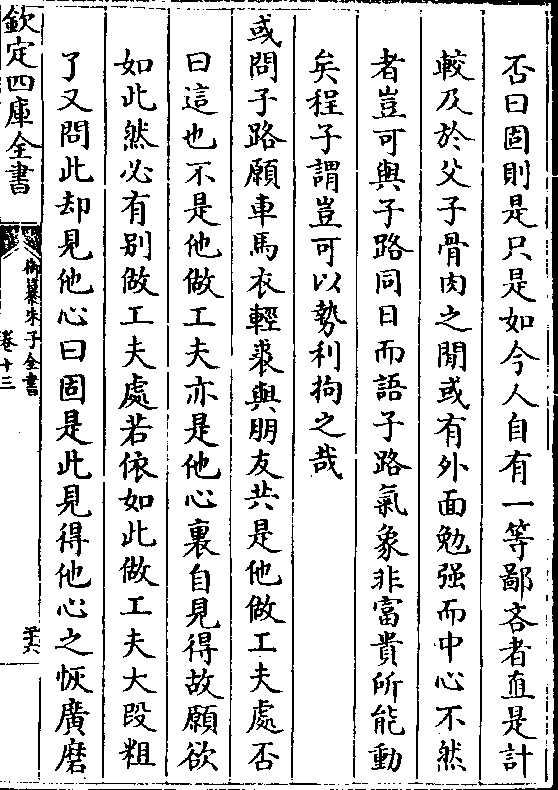 否曰固則是只是如今人自有一等鄙吝者直是計
較及於父子骨肉之閒或有外面勉强而中心不然
者豈可與子路同日而語子路氣象非富貴所能動
矣程子謂豈可以勢利拘之哉
或問子路願車馬衣輕裘與朋友共是他做工夫處否
曰這也不是他做工夫亦是他心裏自見得故願欲
如此然必有别做工夫處若依如此做工夫大段粗
了又問此却見他心曰固是此見得他心之恢廣磨
欽定四庫全書
御纂朱子全書
卷十三
三十六